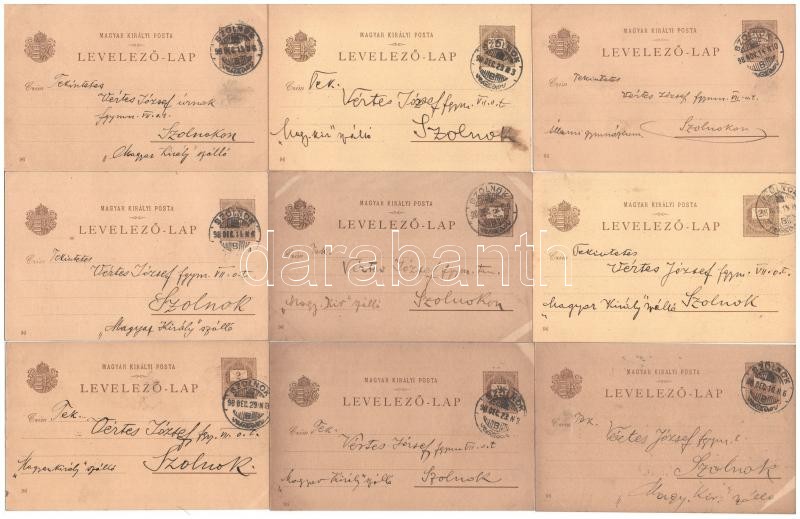 MAGYAR KIRÁLYI POSTA
LEVELEZŐ-LAP
SZOLNOK
98 DEC.
Czím
Tekintetes
Vértes József úrnak
fgymn. VII. o.t.
Szolnokon
„Magyar Király" szálló
MAGYAR KIRÁLYI POSTA
LEVELEZŐ-LAP
SZOLNOK
98 DEC. 23
Czím
Tek.
Vértes József fgym. VII. o.t.
„Magy. kir" szálló
Szolnok
MAGYAR KIRÁLYI POSTA
LEVELEZŐ-LAP
SZOLNOK
98 NOV.
Czím
Tekintetes
Vértes József fgymn.
Szolnokon
Állami gymnásium
MAGYAR KIRÁLYI POSTA
LEVELEZŐ-LAP
SZOLNOK
98 DEC.
Czím
Tekintetes
Vértes József fgym. VII. o.t.
Szolnok
„Magyar Király" szálló
MAGYAR KIRÁLYI POSTA
LEVELEZŐ-LAP
SZOLNOK
Czím
Vértes József fgymn.
„Magy. Kir" szálló
Szolnokon
MAGYAR KIRÁLYI POSTA
LEVELEZŐ-LAP
SZOLNOK
Czím
Tekintetes
Vértes József fgym. VII. o.t.
„Magyar Király" szálló
Szolnok
MAGYAR KIRÁLYI POSTA
LEVELEZŐ-LAP
SZOLNOK
98 DEC. 29
Czím
Tek.
Vértes József fgy. VII. o.t.
„Magyar király" szálló
Szolnok.
MAGYAR KIRÁLYI POSTA
LEVELEZŐ-LAP
SZOLNOK
98 DEC. 22
Czím
Tek.
Vértes József fgymn VII. o.t
„Magyar Király" szálló
Szolnok
MAGYAR KIRÁLYI POSTA
LEVELEZŐ-LAP
SZOLNOK
98 DEC.
Czím
Tek.
Vértes József fgymn.
Szolnok
„Magy. Kir." szálló
darabanth